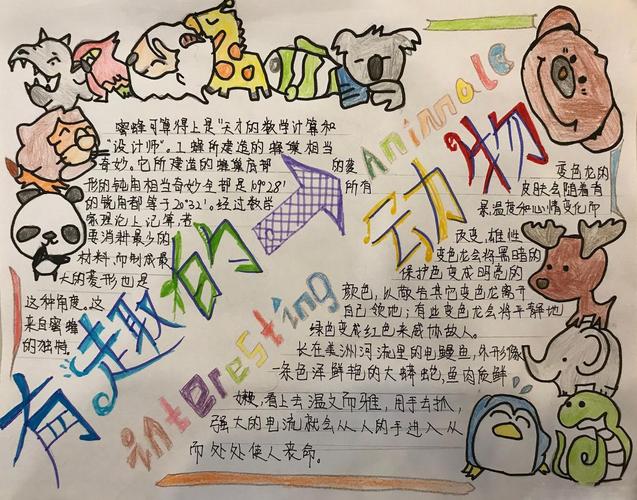 有趣的动物
Interesting
Animale
蜜蜂可算得上是"天才的数学计算和
"设计师"。工蜂所建造的蜂巢相当
奇妙。它所建造的蜂巢底部 的菱
形的钝角相当奇妙全部是109°28'所有
的锐角都等于70°32'。经过数学
家理论上记算,若
要消耗最少的
材料,而制成最
大的菱形也是
这种角度。这
来自蜜蜂
的独特。
变色龙的
皮肤会随着背
景,温度和心情变化而
改变,雄性
变色龙会将黑暗的
保护色变成明亮的
颜色,以敬告其它变色龙离开
自己领地;有些变色龙会将平静地
绿色变成红色来威协敌人。
长在美洲河流里的电鳗鱼,外形像
一条色泽鲜艳的大蟒蛇,鱼肉质鲜
嫩,看上去温文而雅,用手去抓,
强大的电流就会从人的手进入从
而处处使人丧命。